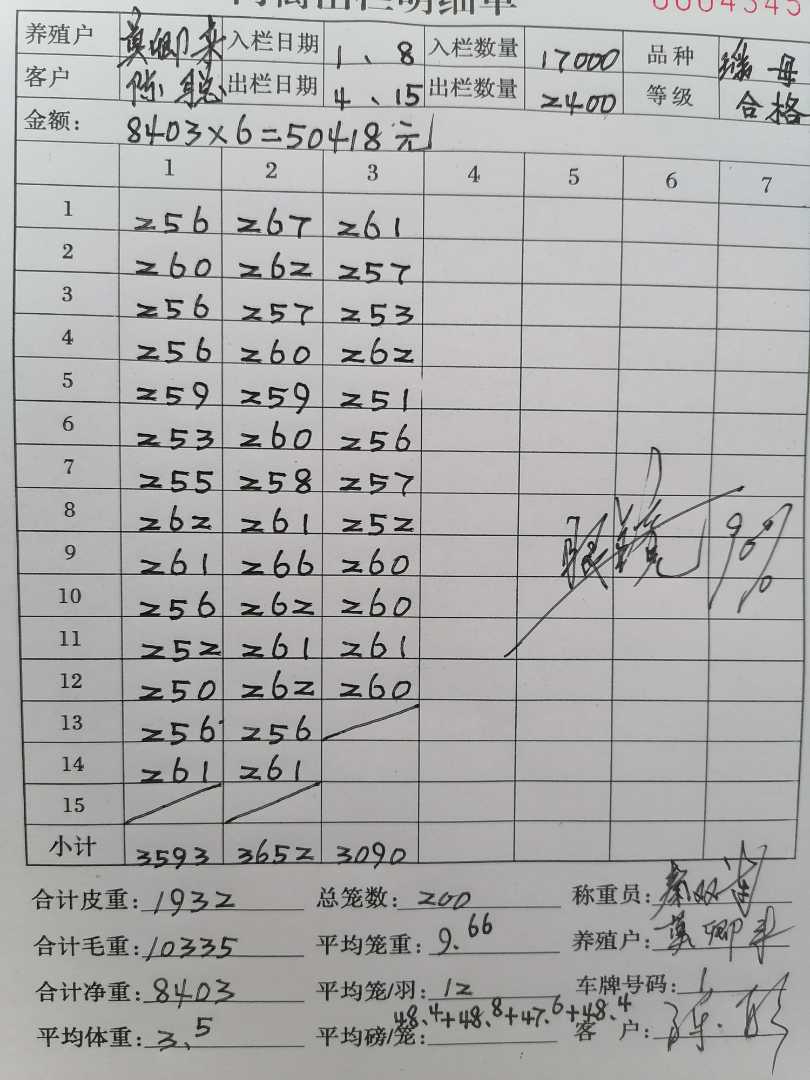 出栏明细单 0004345
养殖户 莫卿来 入栏日期 1、8 入栏数量 17000 品种
客户 陈 出栏日期 4、15 出栏数量 2400 等级 合格
金额: 8403×6=50418元
1 2 3 4 5 6 7
1 256 267 261
2 260 262 257
3 256 257 253
4 256 260 262
5 259 259 251
6 253 260 256
7 255 258 257
8 262 261 252
9 261 266 260
10 256 262 260
11 252 261 261
12 250 262 260
13 256 256
14 261 261
15
小计 3593 3652 3090
合计皮重: 1932 总笼数: 200 称重员:
合计毛重: 10335 平均笼重: 9.66 养殖户: 莫卿来
合计净重: 8403 平均笼/羽: 12 车牌号码:
平均体重: 3.5 平均磅/笼: 48.4+48.8+47.6+48.4 客户: